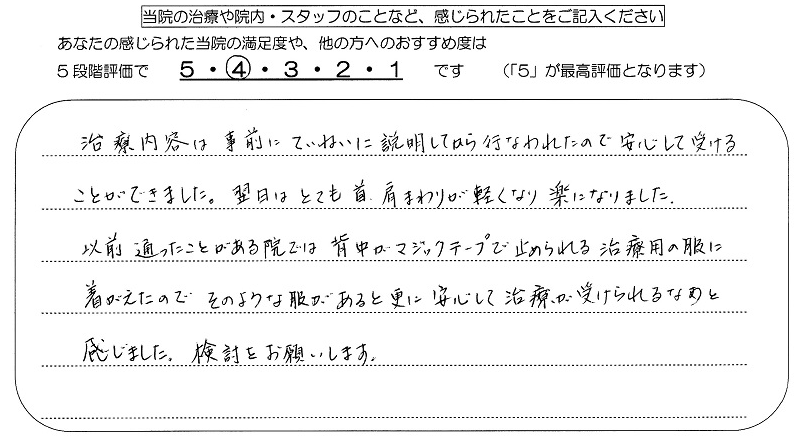 当院の治療や院内・スタッフのことなど、感じられたことをご記入ください
あなたの感じられた当院の満足度や、他の方へのおすすめ度は
5段階評価で 5・④・3・2・1 です （「5」が最高評価となります）
治療内容は事前にていねいに説明してから行なわれたので安心して受ける
ことができました。翌日はとても首、肩まわりが軽くなり楽になりました。
以前通ったことがある院では背中がマジックテープで止められる治療用の服に
着がえたのでそのような服があると更に安心して治療が受けられるなあと
感じました。検討をお願いします。